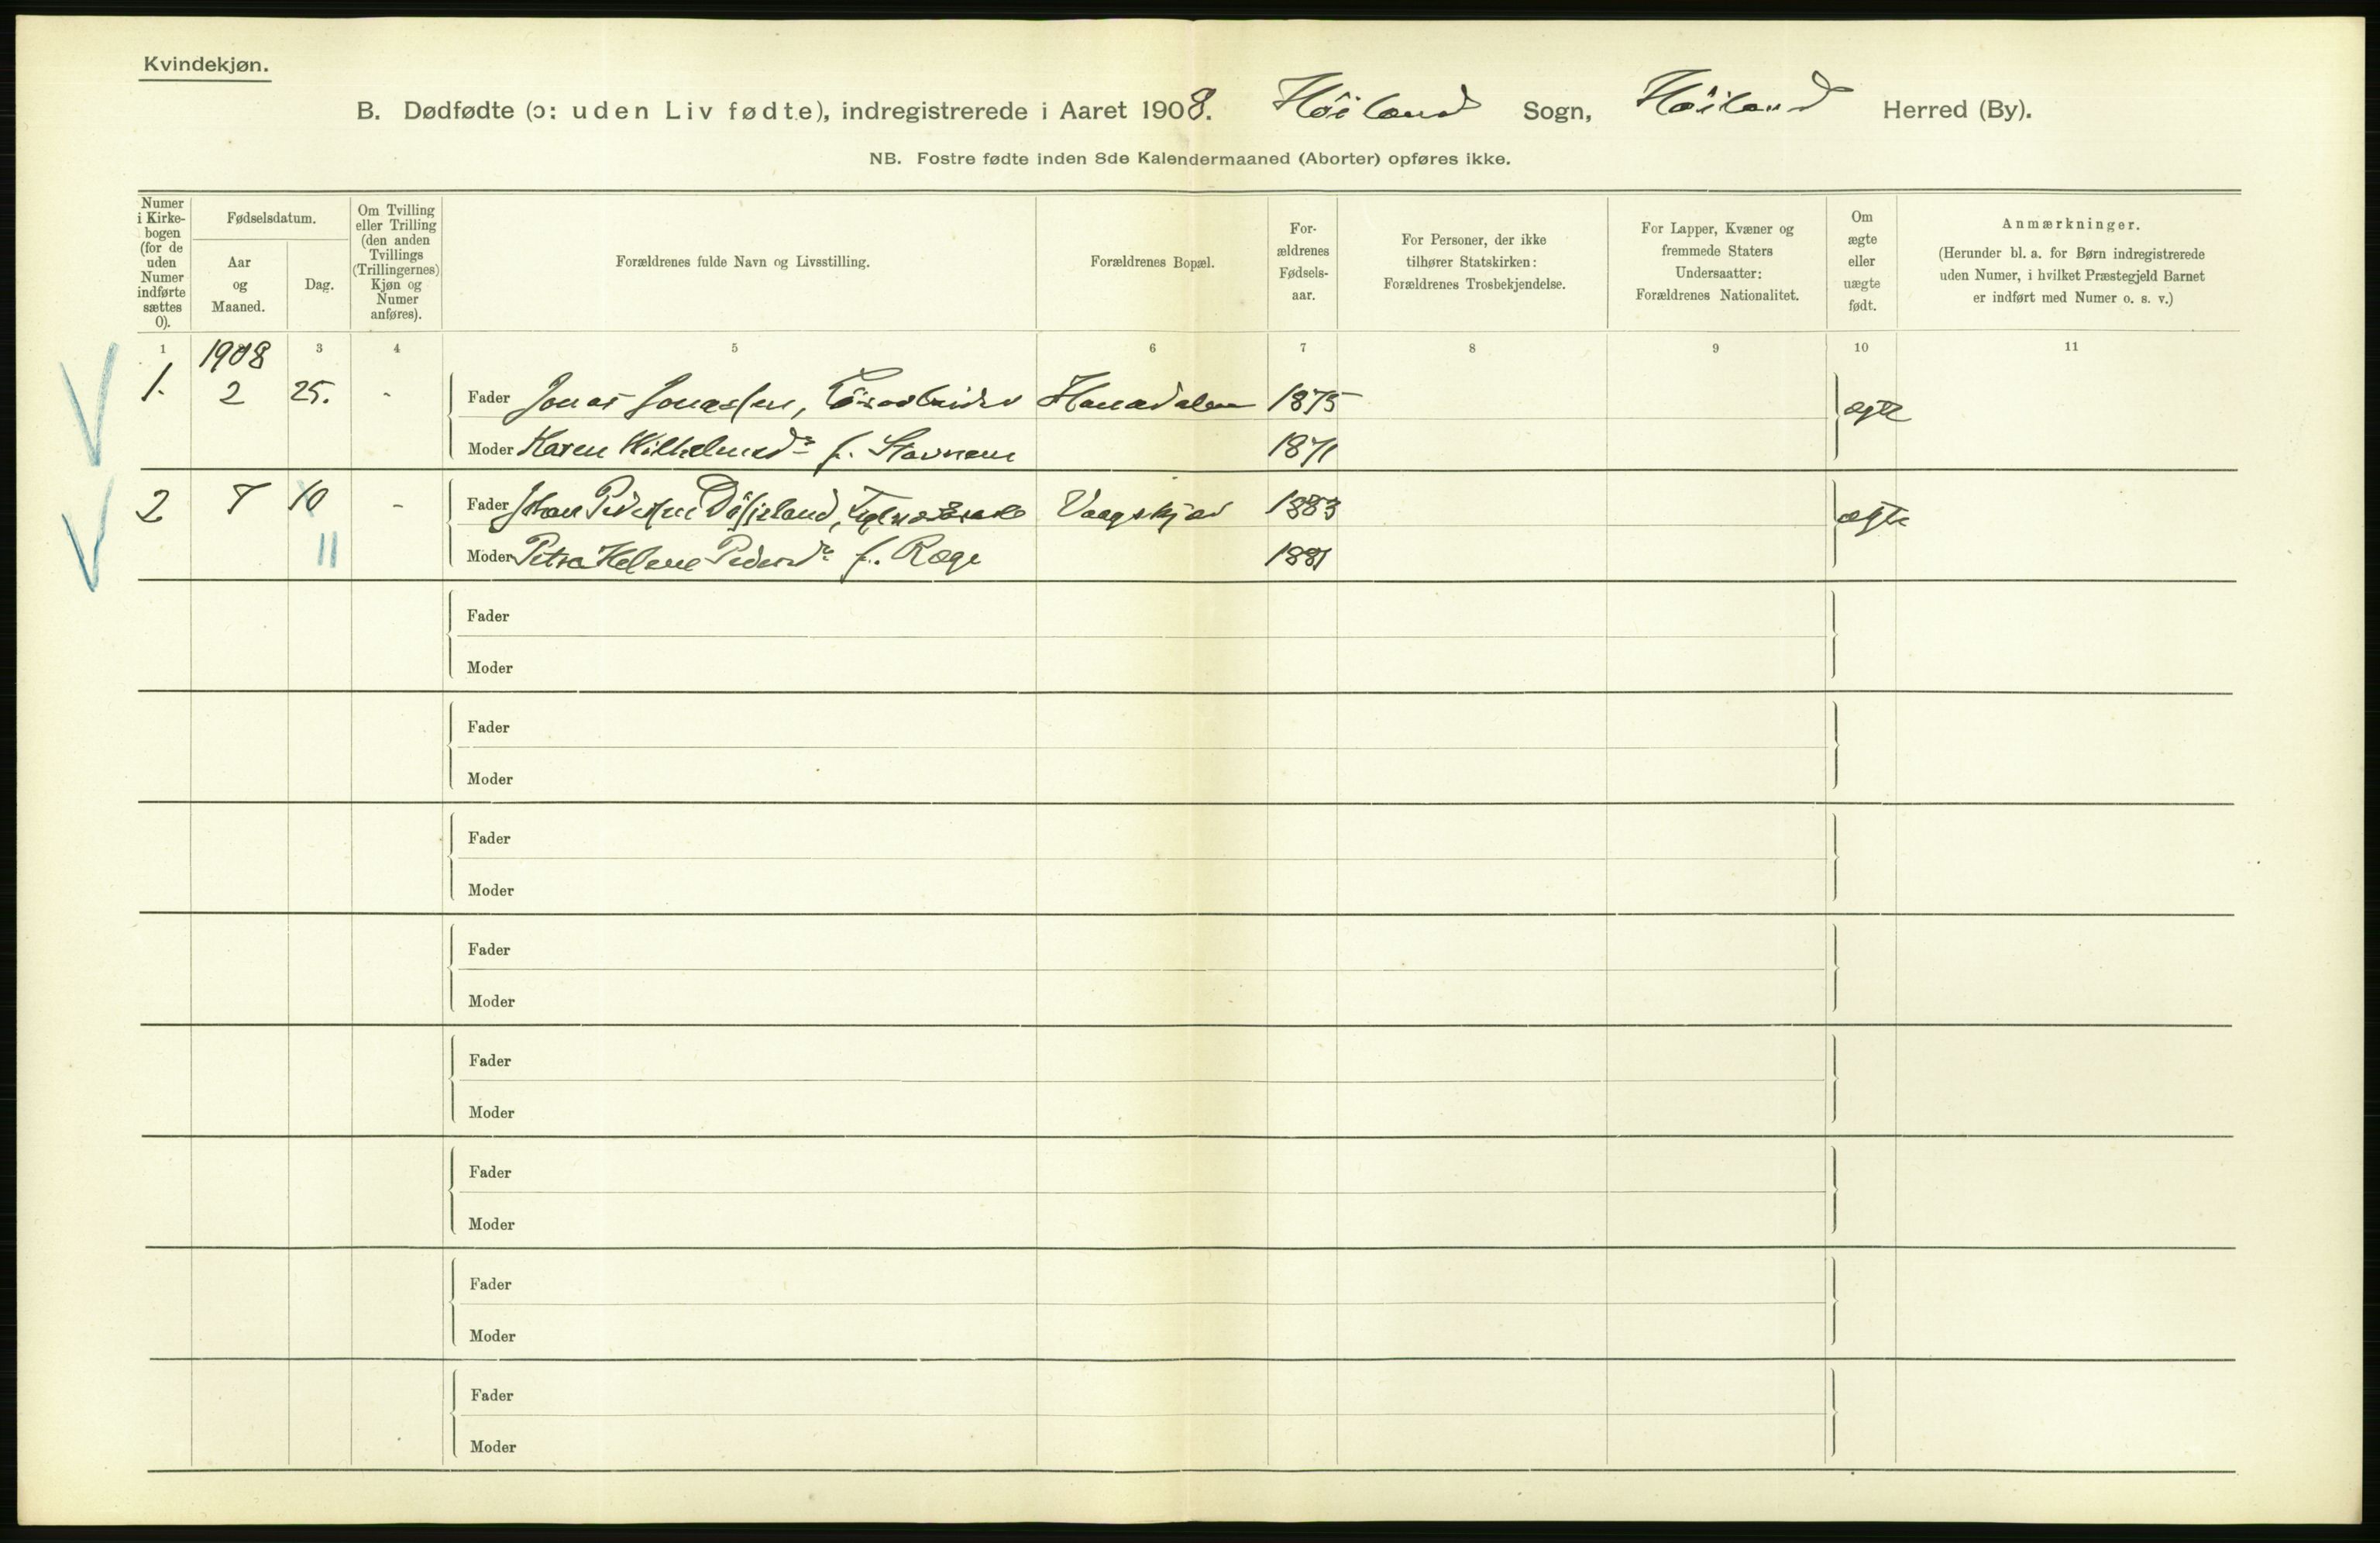 Kvindekjøn.
B. Dødfødte (ɔ: uden Liv fødte), indregistrerede i Aaret 1908. Höiland Sogn, Höiland Herred (By).
NB. Fostre fødte inden 8de Kalendermaaned (Aborter) opføres ikke.
Numer
i Kirke-
bogen
(for de
uden
Numer
indførte
sættes
0).
Fødselsdatum.
Aar
og
Maaned.
Dag.
Om Tvilling
eller Trilling
(den anden
Tvillings
(Trillingernes)
Kjøn og
Numer
anføres).
Forældrenes fulde Navn og Livsstilling.
Forældrenes Bopæl.
For-
ældrenes
Fødsels-
aar.
For Personer, der ikke
tilhører Statskirken:
Forældrenes Trosbekjendelse.
For Lapper, Kvæner og
fremmede Staters
Undersaatter:
Forældrenes Nationalitet.
Om
ægte
eller
uægte
født.
Anmærkninger.
(Herunder bl. a. for Børn indregistrerede
uden Numer, i hvilket Præstegjeld Barnet
er indført med Numer o. s. v.)
1 3 4 5 6 7 8 9 10 11
1908
1. 2 25. - Fader Jonas Jonassen, Løsarbeider Hanadalen 1875 ægte
Moder Karen Wilhelmsdr f. Stavnem 1871
2 7 10 - Fader Johan Pedersen Vaagskjær 1883 ægte
11 Moder Petra Helene Pedersdr f. Ræge 1881
Fader
Moder
Fader
Moder
Fader
Moder
Fader
Moder
Fader
Moder
Fader
Moder
Fader
Moder
Fader
Moder